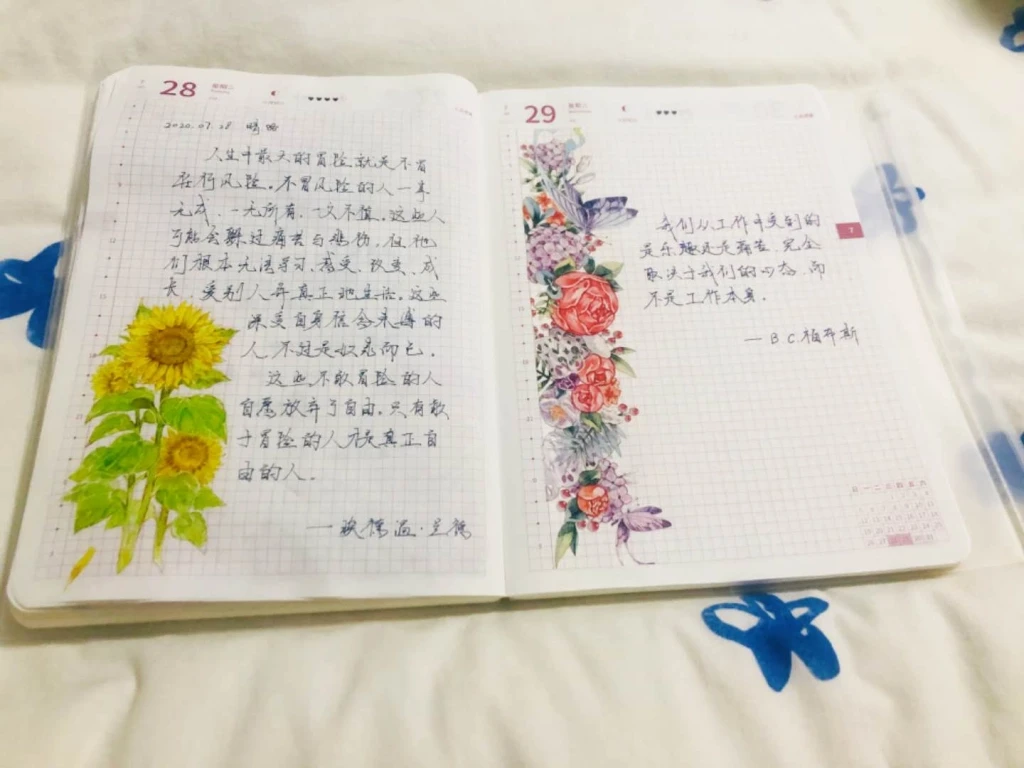 28
星期二
2020.07.28 晴
人生中最大的冒险就是不肯
去行风险。不冒风险的人一事
无成、一无所有、一文不值。这些人
可能会躲过痛苦与悲伤,但他
们根本无法学习、感受、改变、成
长、爱别人并真正地生活。这些
深受自身信念束缚的
人不过是奴隶而已。
这些不敢冒险的人
自愿放弃了自由。只有敢
于冒险的人才是真正自
由的人。
29
星期三
7
我们从工作中受到的
是乐趣还是痛苦,完全
取决于我们的心态,而
不是工作本身。
— B.C.柏
日 一 二 三 四 五 六